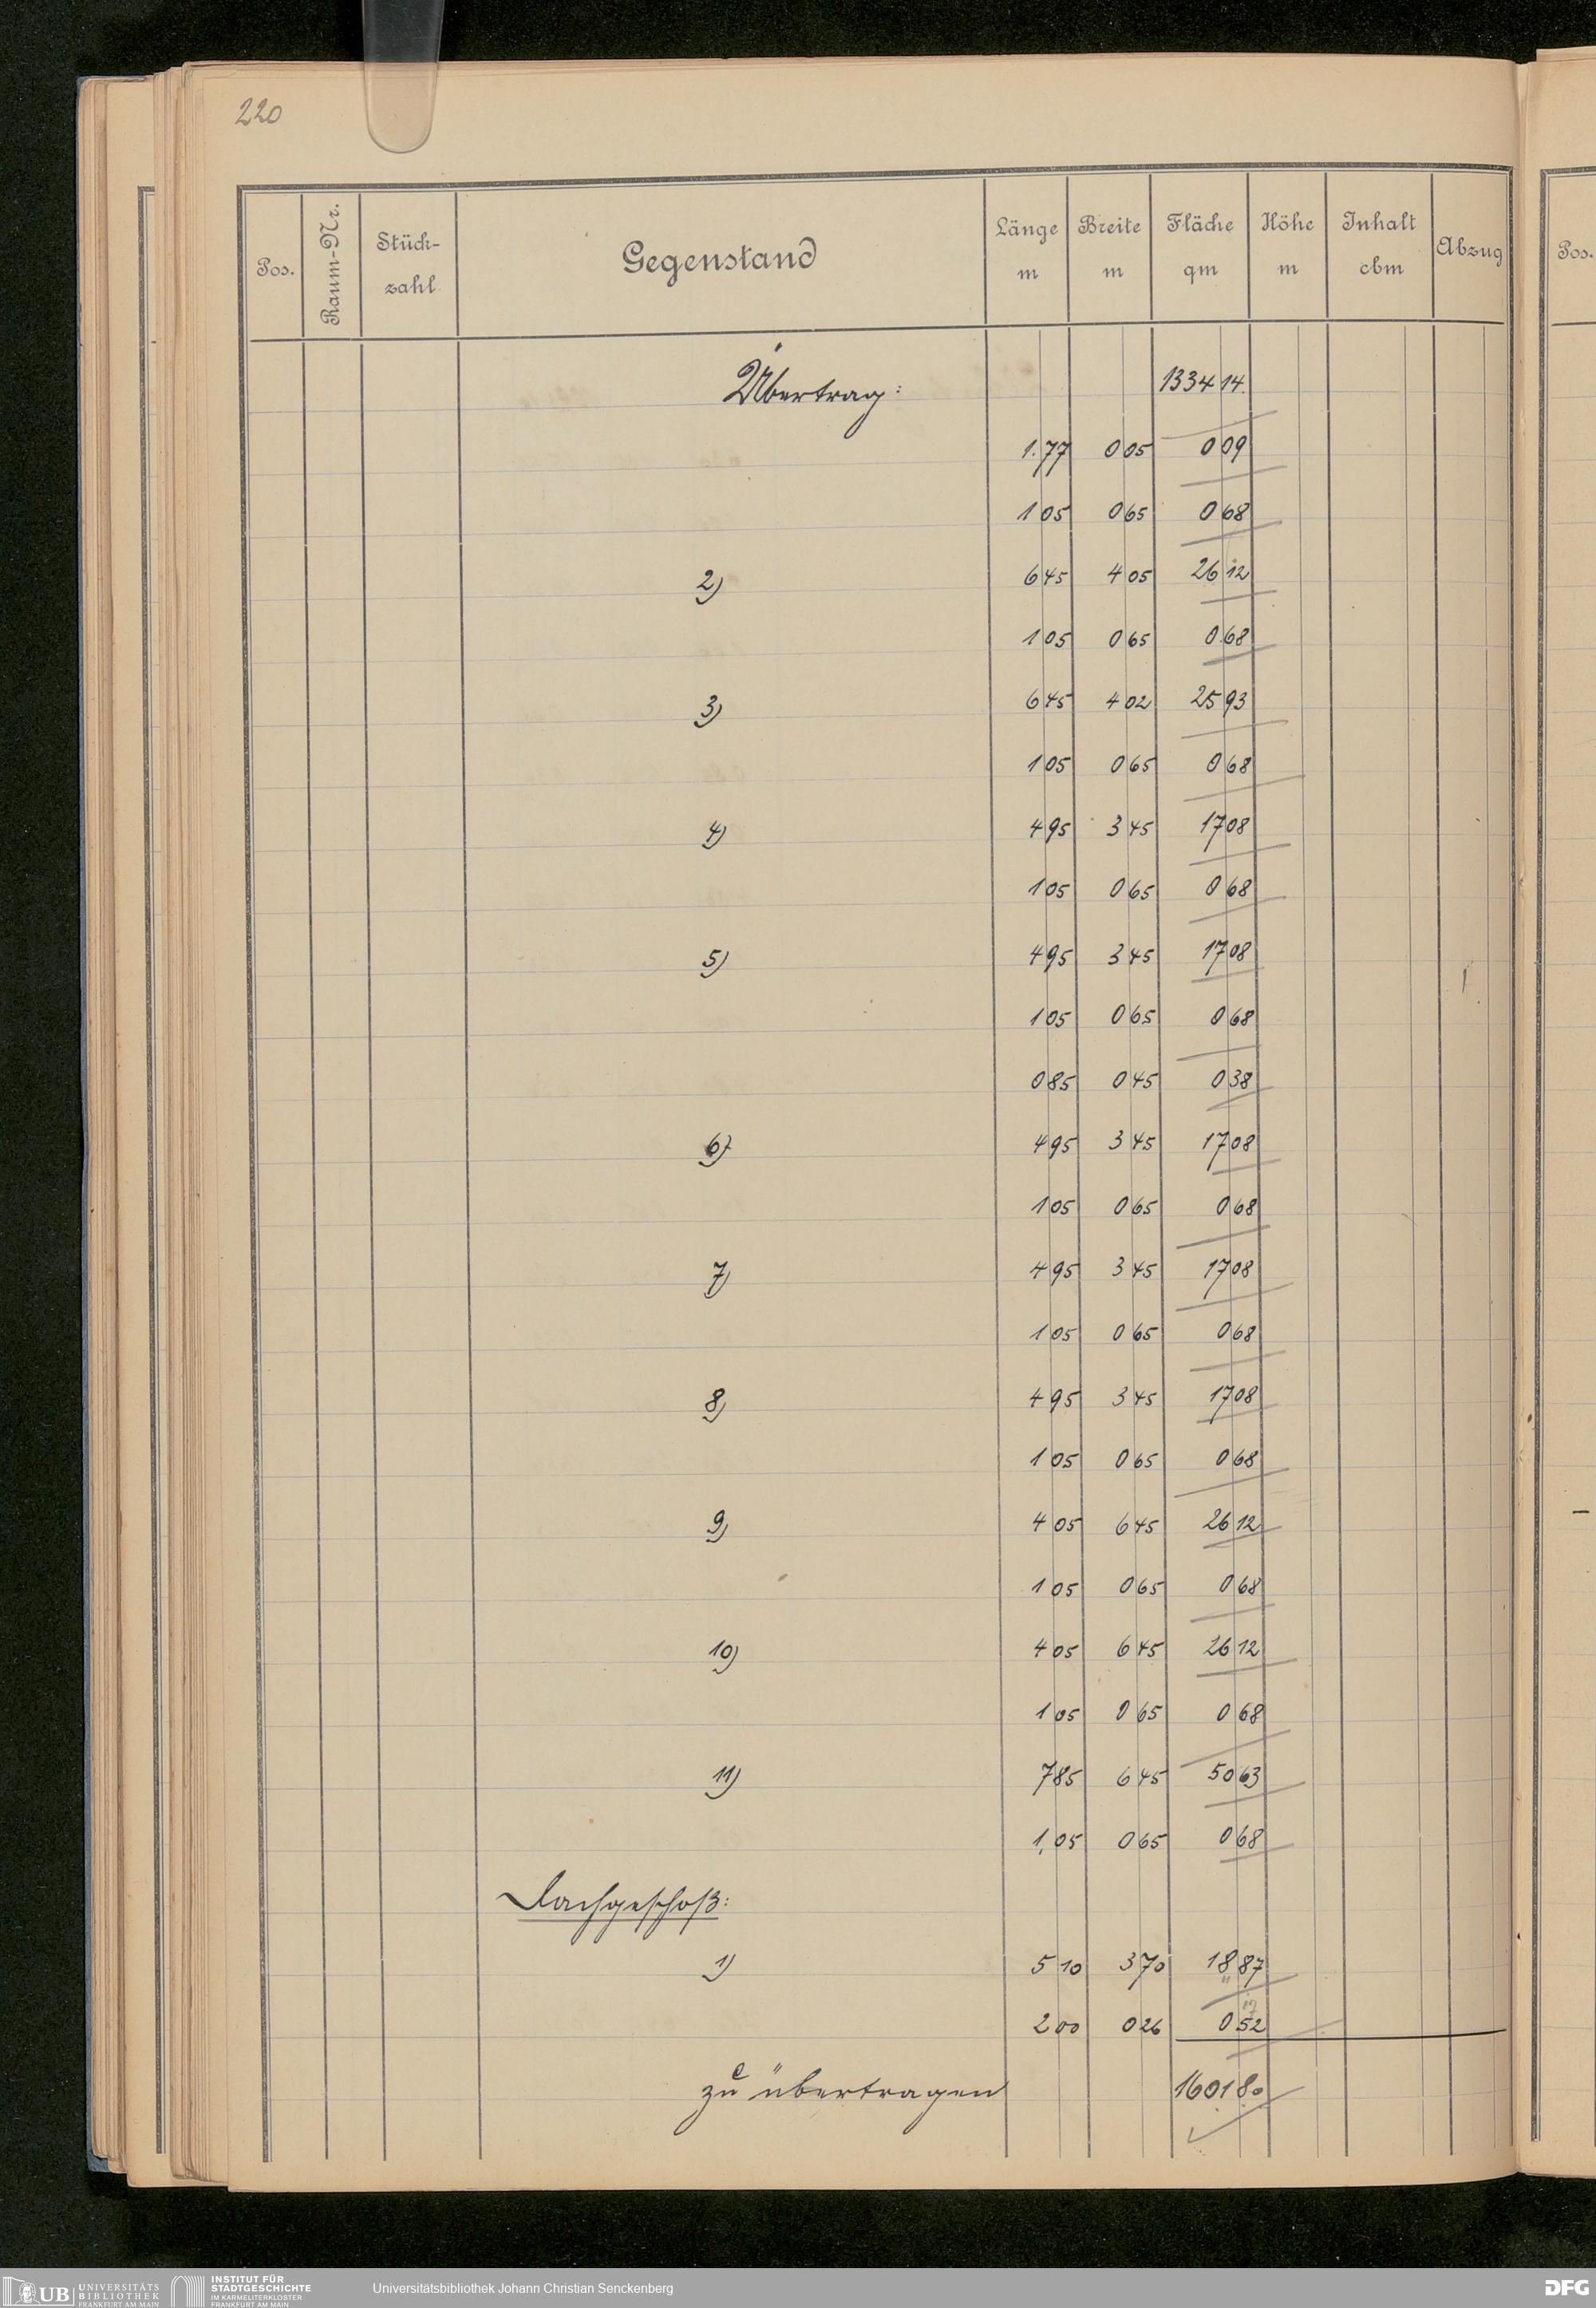 220
Pos. Raum-Nr. Stück-zahl. Gegenstand Länge m Breite m Fläche qm Höhe m Inhalt cbm Abzug
Pos.
Übertrag: 1334 14.
1.77 0 05 0 09
1 05 0 65 0 68
2) 6 45 4 05 26 12
1 05 0 65 0.68
3) 6 45 4 02 25 93
1 05 0 65 0 68
4) 4 95 3 45 17 08
1 05 0 65 0 68
5) 4 95 3 45 17 08
1 05 0 65 0 68
0 85 0 45 0 38
6) 4 95 3 45 17 08
1 05 0 65 0 68
7) 4 95 3 45 17 08
1 05 0 65 0 68
8) 4 95 3 45 17 08
1 05 0 65 0 68
9) 4 05 6 45 26 12
1 05 0 65 0 68
10) 4 05 6 45 26 12
1 05 0 65 0 68
11) 7 85 6 45 50 63
1,05 0 65 0 68
Dachgeschoß:
1) 5 10 3 70 18 87
2 00 0 26 0 52
zu übertragen 1601 80
UB UNIVERSITÄTS BIBLIOTHEK FRANKFURT AM MAIN
INSTITUT FÜR STADTGESCHICHTE IM KARMELITERKLOSTER FRANKFURT AM MAIN
Universitätsbibliothek Johann Christian Senckenberg
DFG